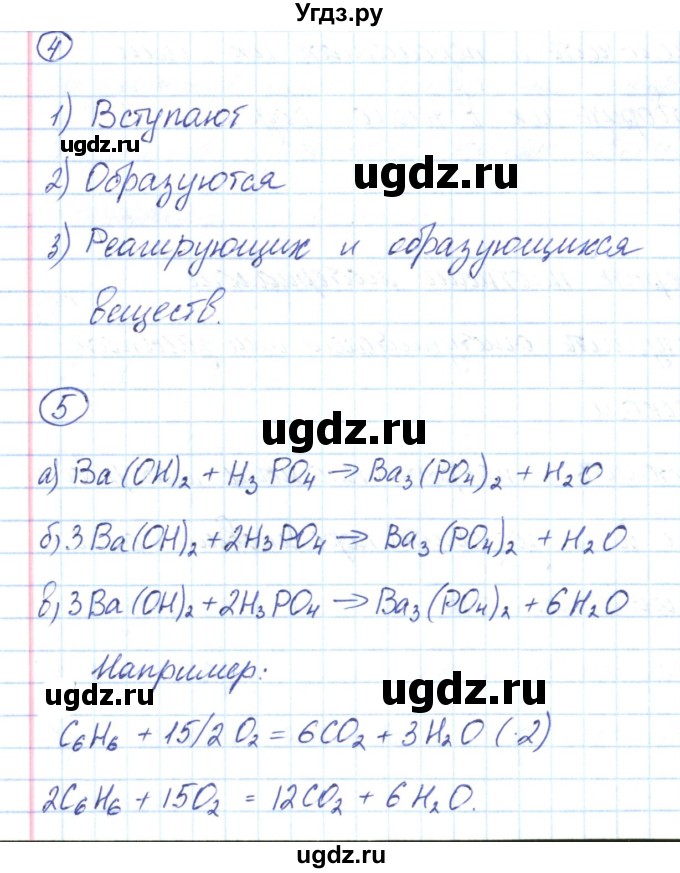 Угдз.ру
4
1) Вступают
ugdz.ru
2) Образуются
ugdz.ru
3) Реагирующих и образующихся
веществ.
ugdz.ru
5
ugdz.ru
а) Ba(OH)₂ + H₃PO₄ → Ba₃(PO₄)₂ + H₂O
б) 3Ba(OH)₂ + 2H₃PO₄ → Ba₃(PO₄)₂ + H₂O
в) 3Ba(OH)₂ + 2H₃PO₄ → Ba₃(PO₄)₂ + 6H₂O
Например:
ugdz.ru
ugdz.ru
C₆H₆ + 15/2 O₂ = 6CO₂ + 3H₂O (·2)
2C₆H₆ + 15O₂ = 12CO₂ + 6H₂O.
ugdz.ru